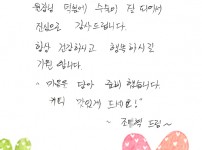 원장님 덕분에 수술이 잘 되어서
진심으로 감사드립니다.
항상 건강하시고 행복하시길
기원합니다.
~ 마음을 담아 준비했습니다.
맛있게 드세요!"
~ 드림 ~